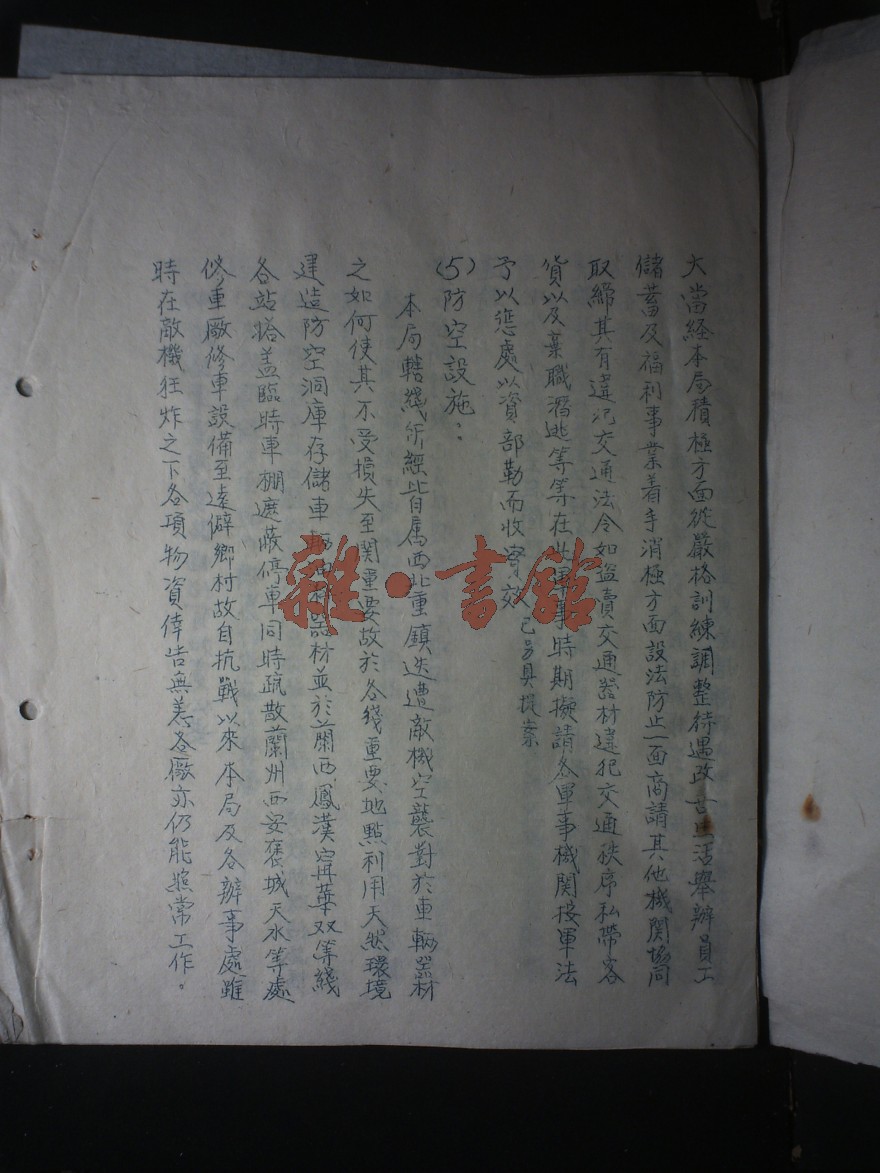 大當経本局積極方面從嚴格訓練調整待遇改善生活舉辦員工
儲蓄及福利事業着手消極方面設法防止一面商請其他機関協同
取締其有違犯交通法令如盗賣交通器材違犯交通秩序私帶客
貨以及棄職潛逃等等在此軍事時期擬請各軍事機関按軍法
予以惩處以資部勒而收宏效已另具提案
(5)防空設施：
本局轄綫所經皆屬西北重鎮迭遭敵機空襲對於車輛器材
之如何使其不受損失至関重要故於各綫重要地點利用天然環境
建造防空洞庫存儲車輛器材並於蘭西鳳漢甯華双等綫
各站搭盖臨時車棚遮蔽停車同時疏散蘭州西安褒城天水等處
修車廠修車設備至遠僻鄉村故自抗戰以來本局及各辦事處雖
時在敵機狂炸之下各項物資倖告無恙各廠亦仍能照常工作。
雜·書館